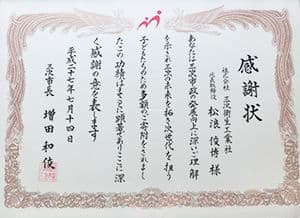 感謝状
株式会社 三次衛生工業社
代表取締役 松浪 俊博 様
あなたは三次市政の発展向上に深いご理解
を示され三次の未来を拓く次世代を担う
子どもたちのため多額のご寄附をされまし
たこの功績はまことに顕著でありここに深
く感謝の意を表します
平成二十七年七月十四日
三次市長 増田 和俊